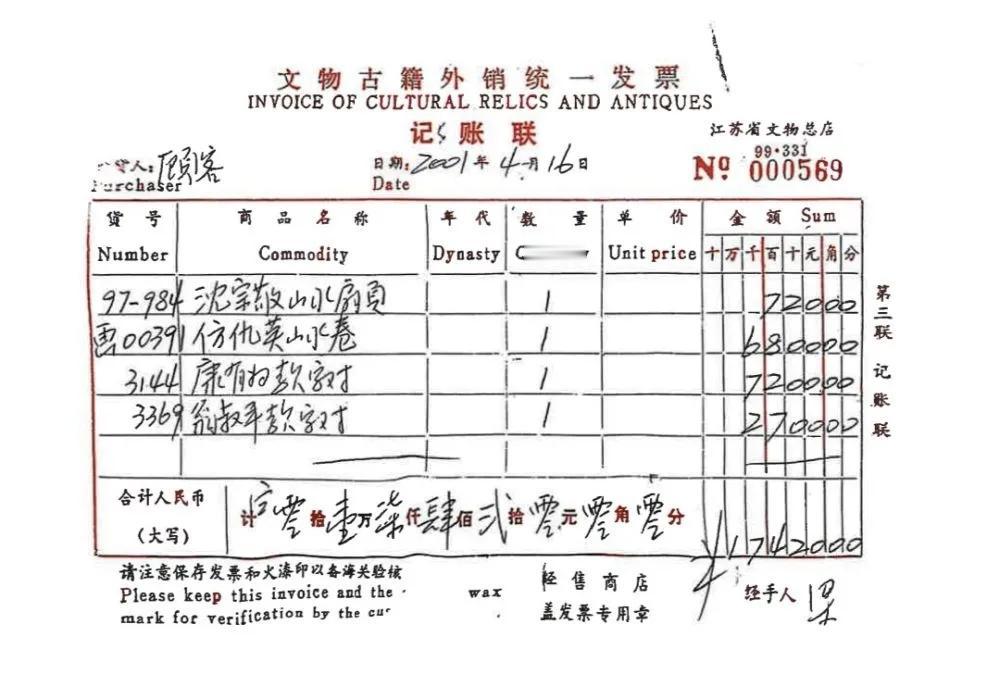 文物古籍外销统一发票
INVOICE OF CULTURAL RELICS AND ANTIQUES
记账联
江苏省文物总店
货人: 顾客
Purchaser
日期: 2001年 4月16日
Date
99·331
Nº 000569
货号 商品名称 年代 数量 单价 金额 Sum
Number Commodity Dynasty Unit price 十万千百十元角分
97-984 沈宗敬山水扇页 1 72000
画00391 仿仇英山水卷 1 680000
3144 康有为款字对 1 720000
3369 翁叔平款字对 1 270000
合计人民币
(大写)
计 零拾壹万柒仟肆佰贰拾零元零角零分
¥1742000
第三联 记账联
请注意保存发票和火漆印以备海关验核
Please keep this invoice and the wax
mark for verification by the cus
经售商店
盖发票专用章
经手人